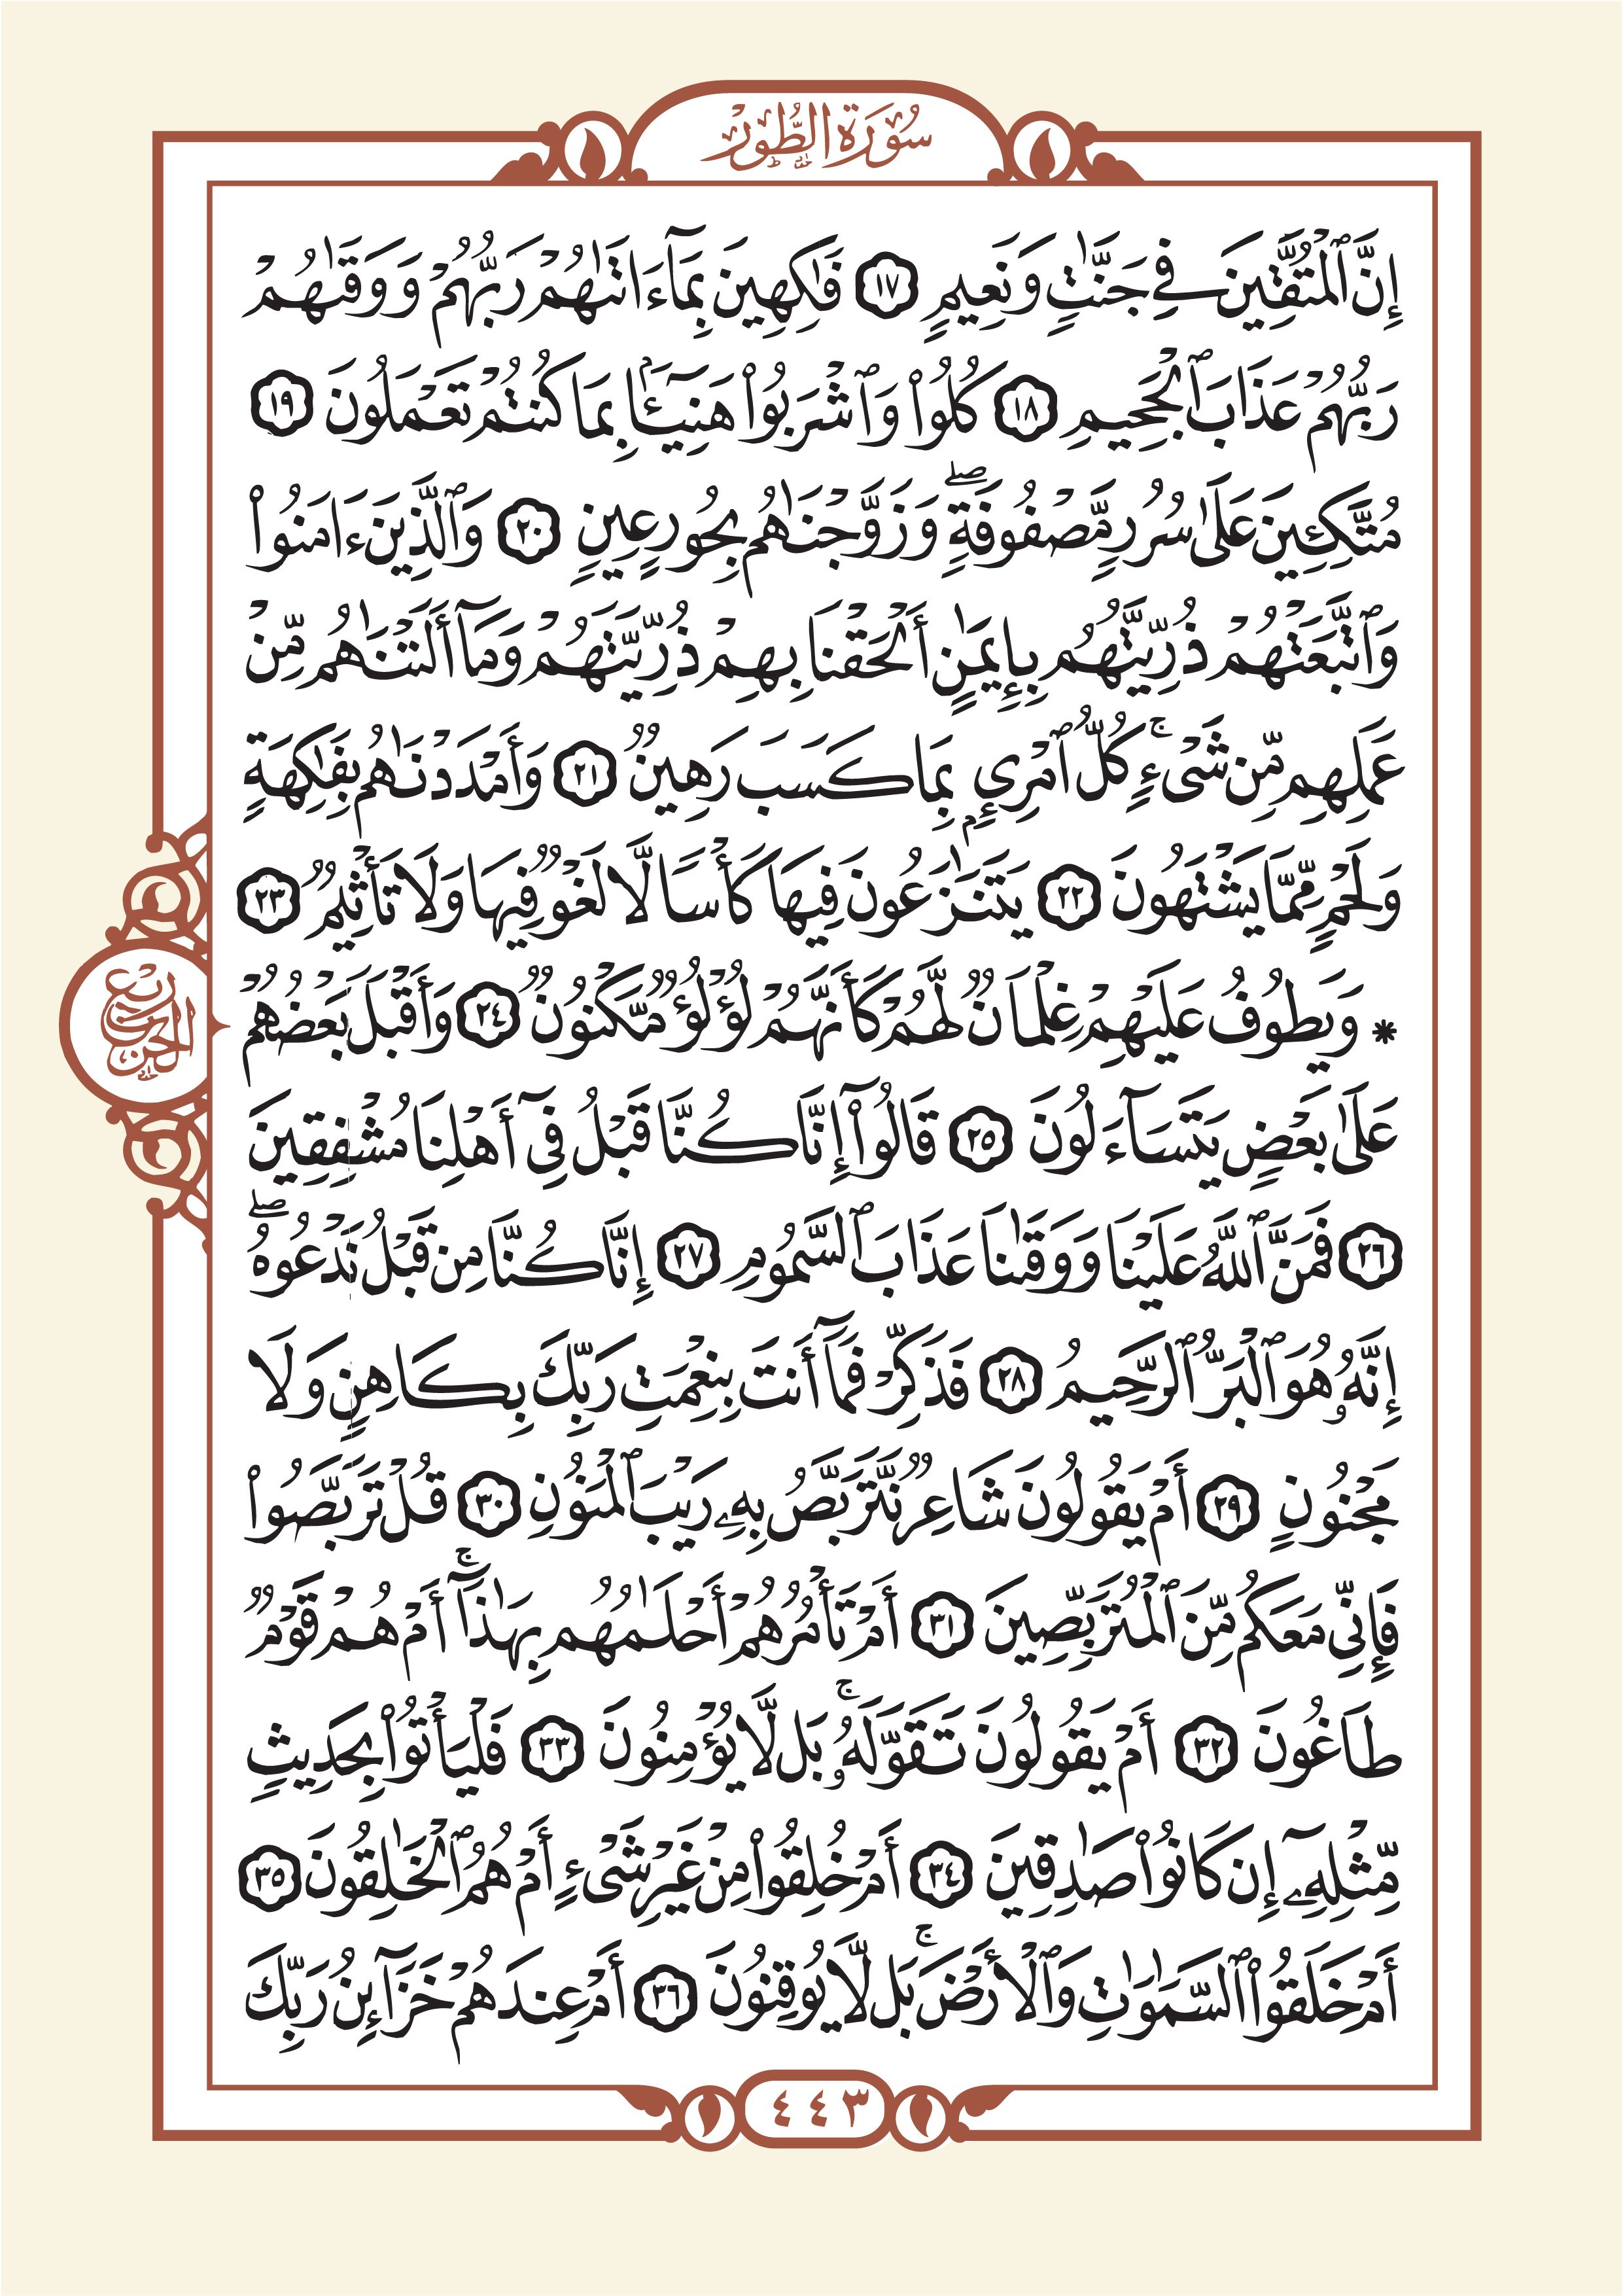 سُورَةُ الطُّورِ
إِنَّ ٱلْمُتَّقِينَ فِي جَنَّٰتٖ وَنَعِيمٖ ١٧ فَٰكِهِينَ بِمَآ ءَاتَىٰهُمْ رَبُّهُمْ وَوَقَىٰهُمْ
رَبُّهُمْ عَذَابَ ٱلْجَحِيمِ ١٨ كُلُوا۟ وَٱشْرَبُوا۟ هَنِيٓـَٔۢا بِمَا كُنتُمْ تَعْمَلُونَ ١٩
مُتَّكِـِٔينَ عَلَىٰ سُرُرٖ مَّصْفُوفَةٖۖ وَزَوَّجْنَٰهُم بِحُورٍ عِينٖ ٢٠ وَٱلَّذِينَ ءَامَنُوا۟
وَٱتَّبَعَتْهُمْ ذُرِّيَّتُهُم بِإِيمَٰنٍ أَلْحَقْنَا بِهِمْ ذُرِّيَّتَهُمْ وَمَآ أَلَتْنَٰهُم مِّنْ
عَمَلِهِم مِّن شَىْءٖۚ كُلُّ ٱمْرِيِٕۭ بِمَا كَسَبَ رَهِينٞ ٢١ وَأَمْدَدْنَٰهُم بِفَٰكِهَةٖ
وَلَحْمٖ مِّمَّا يَشْتَهُونَ ٢٢ يَتَنَٰزَعُونَ فِيهَا كَأْسٗا لَّا لَغْوٞ فِيهَا وَلَا تَأْثِيمٞ ٢٣
* وَيَطُوفُ عَلَيْهِمْ غِلْمَانٞ لَّهُمْ كَأَنَّهُمْ لُؤْلُؤٞ مَّكْنُونٞ ٢٤ وَأَقْبَلَ بَعْضُهُمْ
رُبْعُ الحِزْبِ
عَلَىٰ بَعْضٖ يَتَسَآءَلُونَ ٢٥ قَالُوٓا۟ إِنَّا كُنَّا قَبْلُ فِىٓ أَهْلِنَا مُشْفِقِينَ
٢٦ فَمَنَّ ٱللَّهُ عَلَيْنَا وَوَقَىٰنَا عَذَابَ ٱلسَّمُومِ ٢٧ إِنَّا كُنَّا مِن قَبْلُ نَدْعُوهُۖ
إِنَّهُۥ هُوَ ٱلْبَرُّ ٱلرَّحِيمُ ٢٨ فَذَكِّرْ فَمَآ أَنتَ بِنِعْمَتِ رَبِّكَ بِكَاهِنٖ وَلَا
مَجْنُونٍ ٢٩ أَمْ يَقُولُونَ شَاعِرٞ نَّتَرَبَّصُ بِهِۦ رَيْبَ ٱلْمَنُونِ ٣٠ قُلْ تَرَبَّصُوا۟
فَإِنِّى مَعَكُم مِّنَ ٱلْمُتَرَبِّصِينَ ٣١ أَمْ تَأْمُرُهُمْ أَحْلَٰمُهُم بِهَٰذَآۚ أَمْ هُمْ قَوْمٞ
طَاغُونَ ٣٢ أَمْ يَقُولُونَ تَقَوَّلَهُۥۚ بَل لَّا يُؤْمِنُونَ ٣٣ فَلْيَأْتُوا۟ بِحَدِيثٖ
مِّثْلِهِۦٓ إِن كَانُوا۟ صَٰدِقِينَ ٣٤ أَمْ خُلِقُوا۟ مِنْ غَيْرِ شَىْءٍ أَمْ هُمُ ٱلْخَٰلِقُونَ ٣٥
أَمْ خَلَقُوا۟ ٱلسَّمَٰوَٰتِ وَٱلْأَرْضَۚ بَل لَّا يُوقِنُونَ ٣٦ أَمْ عِندَهُمْ خَزَآئِنُ رَبِّكَ
٤٤٣